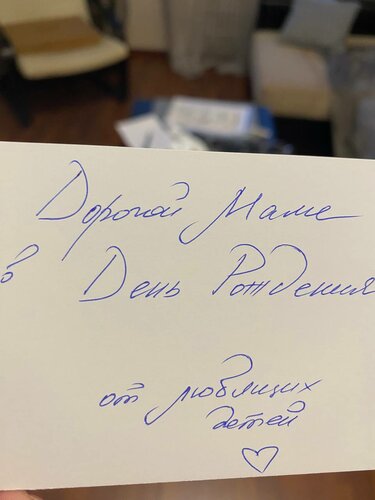 Дорогой Маме
в День Рождения
от любящих
детей